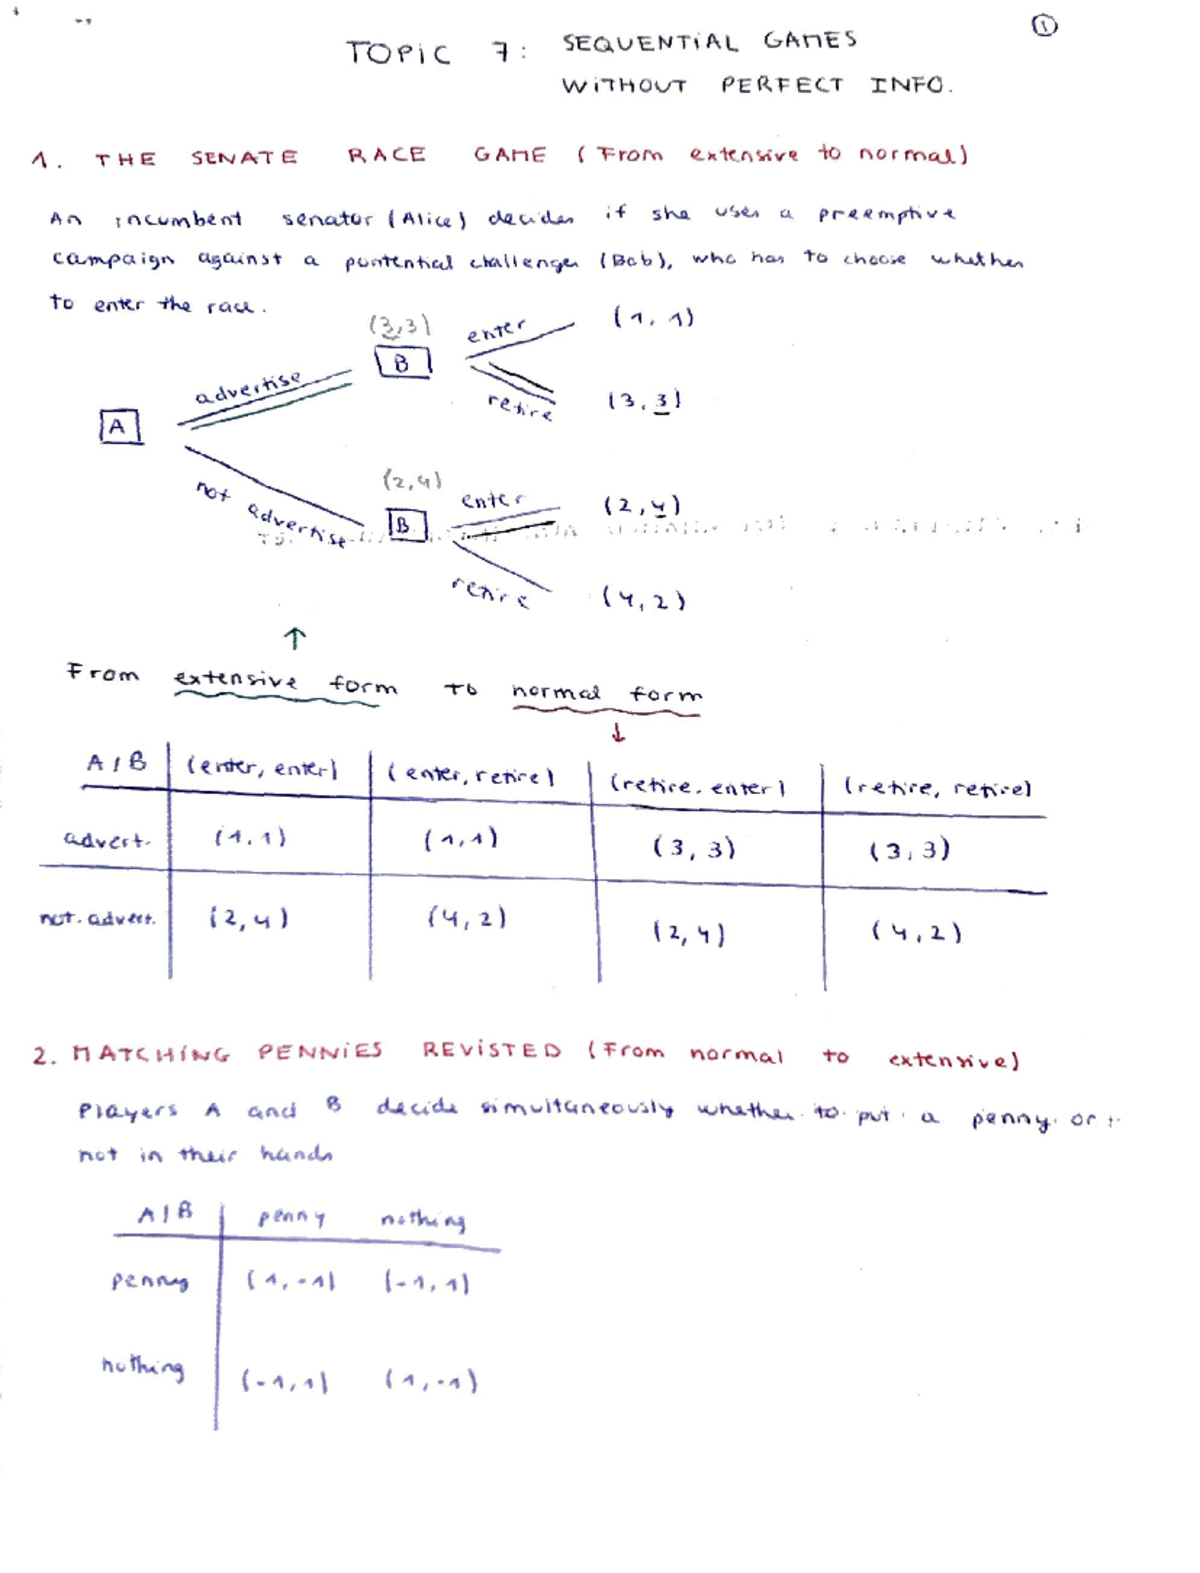 ①
TOPIC 7: SEQUENTIAL GAMES
WITHOUT PERFECT INFO.
1. THE SENATE RACE GAME (From extensive to normal)
An incumbent senator (Alice) decides if she uses a preemptive
campaign against a pontential challenger (Bob), who has to choose whether
to enter the race.
(3,3) enter (1,1)
B
advertise
retire (3,3)
A
(2,4) enter (2,4)
not advertise
B
retire (4,2)
↑
From extensive form to normal form
↓
A/B (enter, enter) (enter, retire) (retire, enter) (retire, retire)
advert. (1,1) (1,1) (3,3) (3,3)
not. advert. (2,4) (4,2) (2,4) (4,2)
2. MATCHING PENNIES REVISTED (From normal to extensive)
Players A and B decide simultaneously whether to put a penny or
not in their hands
A/B penny nothing
penny (1,-1) (-1,1)
nothing (-1,1) (1,-1)